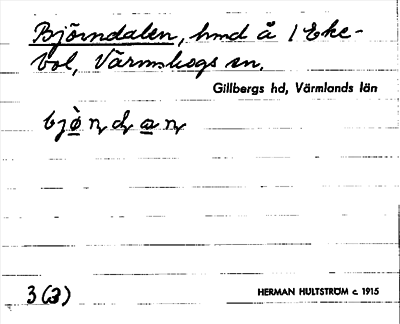 Björndalen, hmd å 1 Eke-
bol, Värmskogs sn.
Gillbergs hd, Värmlands län
3(3)
HERMAN HULTSTRÖM c. 1915